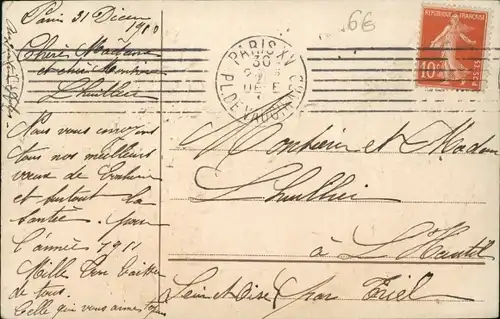 Paris 31 Décem
1910
Chère Madame
et cher Monsieur
Lhuillier
Nous vous envoyons
tous nos meilleurs
vœux de bonheur
et surtout la
santée. pour
l'année 1911
Mille bon baiser
de tous.
Celle qui vous aime
6€
PARIS XV
30
DE
PL. DE VAUGIRARD
REPUBLIQUE FRANÇAISE
10c
POSTES
Monsieur et Madame
Lhuillier
à L'Hautil
Seine et Oise par Triel